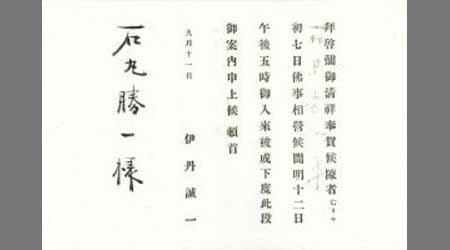 拝啓彌御清祥奉賀候陳者
初七日佛事相営候間明十二日
午後五時御入來被成下度此段
御案内申上候頓首
九月十一日
伊丹誠一
石丸勝一様